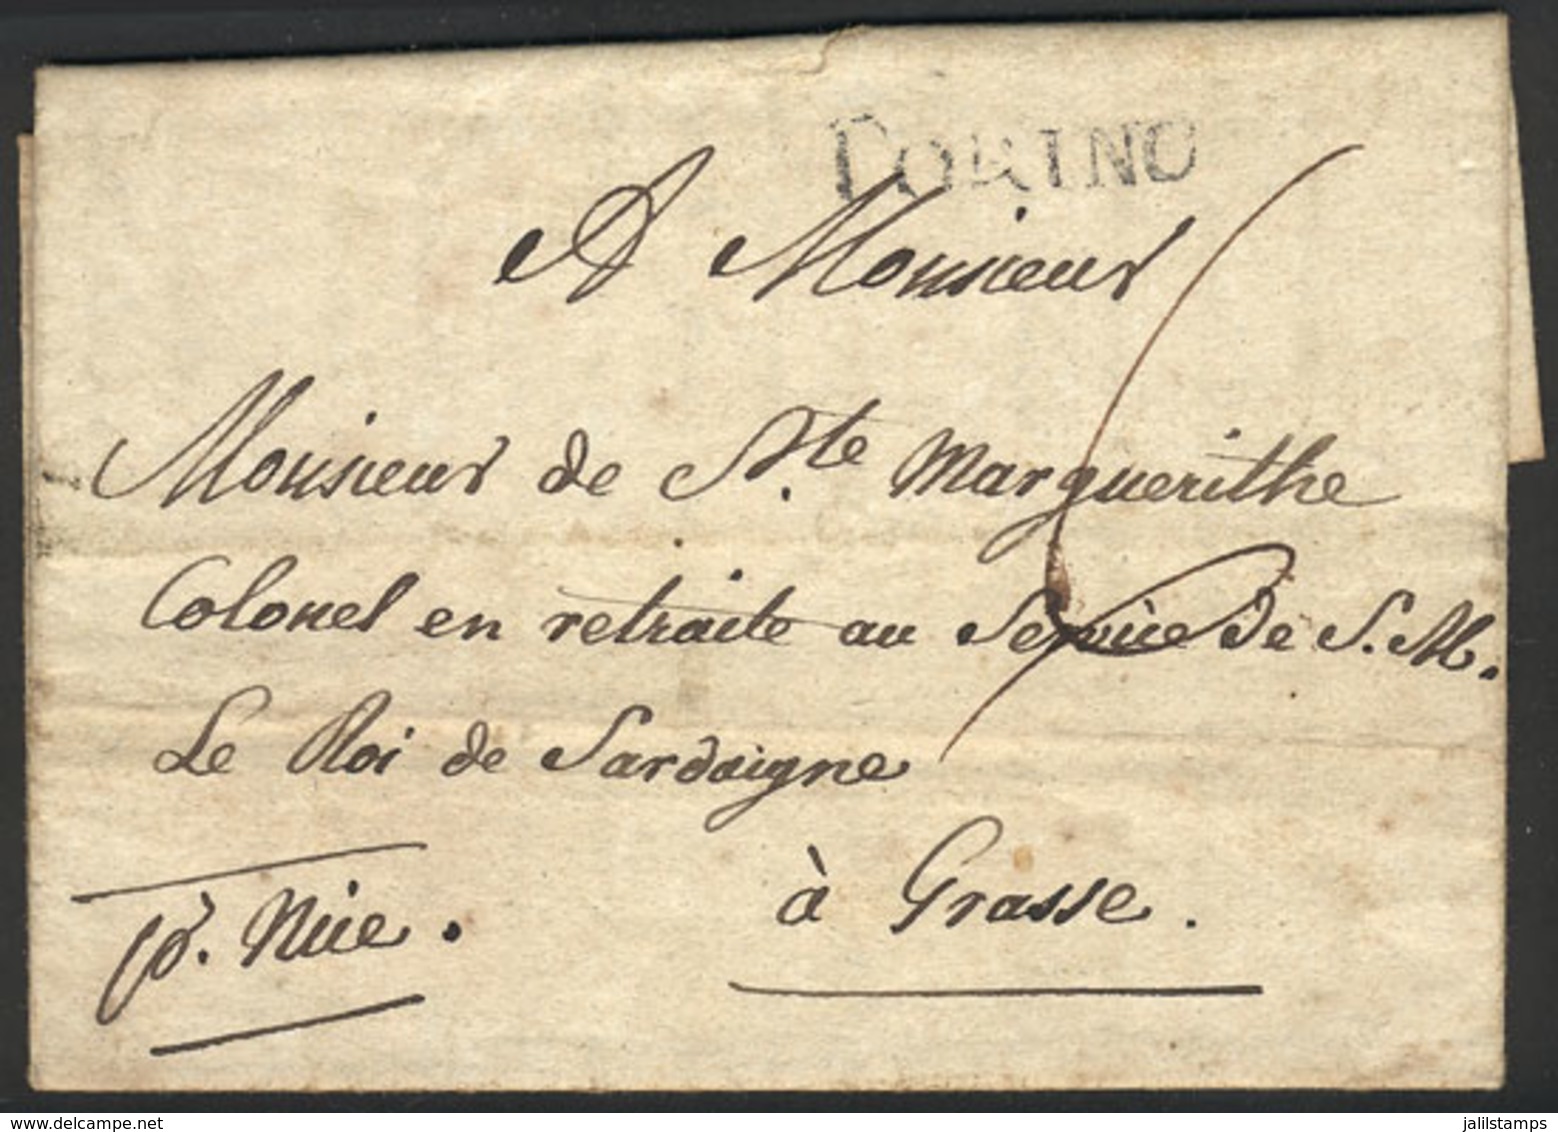 TORINO
A Monsieur
Monsieur de Ste Marguerithe
Colonel en retraite au Service de S. M.
Le Roi de Sardaigne
à Grasse.
pr. Nice.
jalilstamps